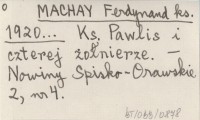 MACHAY Ferdynand ks.
1920... Ks. Pawlis i
czterej żołnierze. —
Nowiny Spisko-Orawskie
2, nr 4.